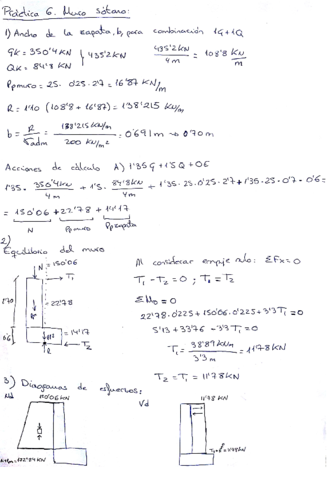 Práctica 6. Muro Sótano:
1) Ancho de la zapata, b, para combinación 1G+1Q
GK = 350'4 KN
QK = 84'8 KN
435'2 KN
435'2 KN / 4m = 108'8 KN/m
Ppmuro = 25 · 0'25 · 2'7 = 16'87 KN/m
R = 1'10 (108'8 + 16'87) = 138'215 KN/m
b = R / σadm = 138'215 KN/m / 200 KN/m² = 0'691 m → 0'70 m
Acciones de cálculo A) 1'35G + 1'5Q + 0E
1'35 · 350'4KN / 4m + 1'5 · 84'8KN / 4m + 1'35 · 25 · 0'25 · 2'7 + 1'35 · 25 · 0'7 · 0'6 =
= 150'06 + 22'78 + 14'17
N Ppmuro Ppzapata
2) Equilibrio del muro
N = 150'06
T₁
22'78
= 14'17
T₂
R
0'6
Al considerar empuje nulo: ΣFx = 0
T₁ - T₂ = 0 ; T₁ = T₂
ΣM₀ = 0
22'78 · 0'225 + 150'06 · 0'225 + 3'3 T₁ = 0
5'13 + 33'76 - 3'3 T₁ = 0
T₁ = 38'89 KNm / 3'3 m = 11'78 KN
T₂ = T₁ = 11'78 KN
3) Diagramas de esfuerzos:
Nd
150'06 KN
172'84 KN
Vd
11'78 KN